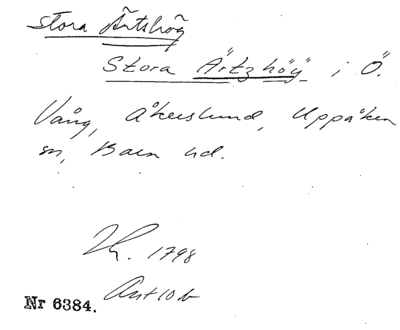 Stora Ärtshög
Stora Ärtzhög i Ö.
Vång, Åkerslund, Uppåkra
sn, Bara hd.
1798
Nr 6384.